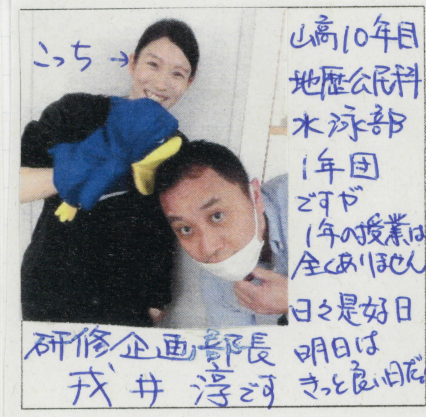 こっち→
山高10年目
地歴公民科
水泳部
1年団
ですが
1年の授業は
全くありません
日々是好日
明日は
きっと良い日だ。
研修企画部長
戎井 淳です